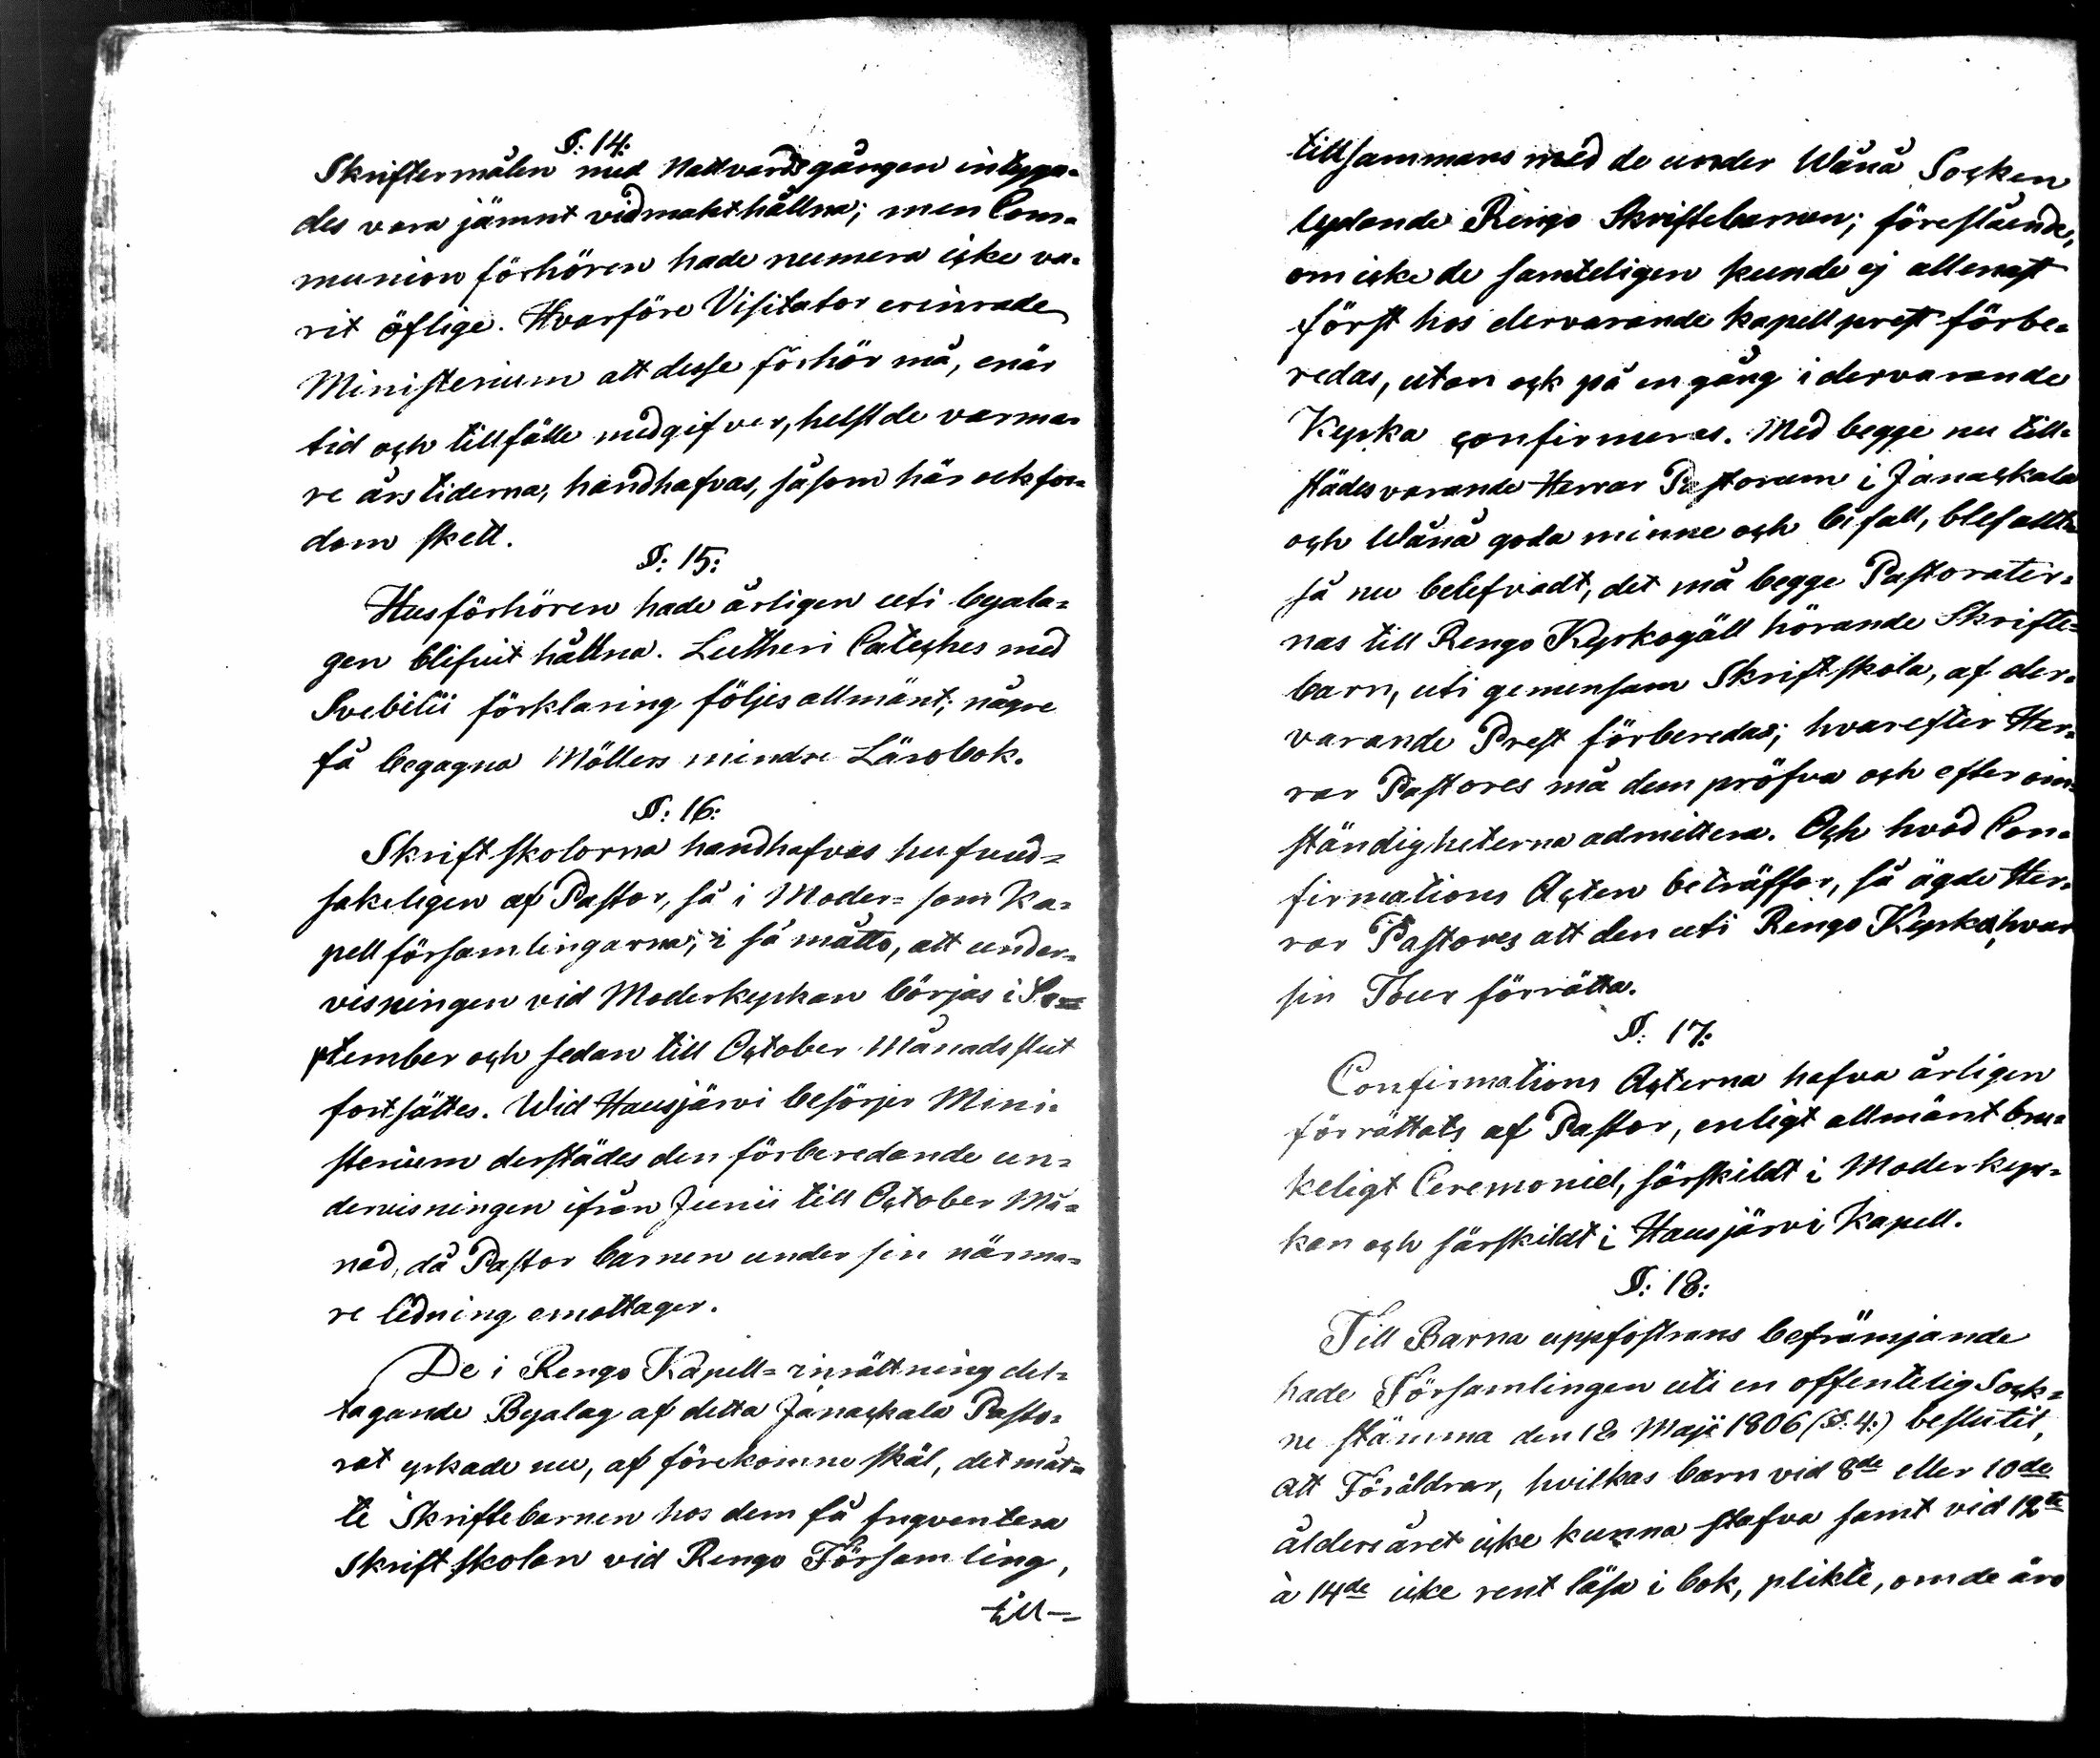 §: 14:
Skriftermålen med Nattvardsgången intyga=
des vara jämnt vidmakthållna; men Com=
munion förhören hade numera icke va=
rit öflige. Hvarföre Visitator erinrade
Ministerium att desse förhör må, enär
tid och tillfälle medgifver, helst de varma=
re årstiderna, handhafvas, såsom här ock for=
dom skett.
§: 15:
Husförhören hade årligen uti byala=
gen blifvit hållna. Lutheri Cateches med
Svebilii förklaring följes allmänt; någre
få begagna Möllers mindre Lärobok.
§: 16:
Skriftskolorna handhafvas hufvud=
sakeligen af Pastor, så i Moder= som Ka=
pellförsamlingarna; i så måtto, att under=
visningen vid Moderkyrkan börjas i Se=
ptember och sedan till October Månads slut
fortsättes. Wid Hausjärvi besörjer Mini=
sterium derstädes den förberedande un=
dervisningen ifrån Junii till October Må=
nad, då Pastor barnen under sin närma=
re ledning emottager.
De i Rengo Kapell=inrättning del=
tagande Byalag af detta Janackala Pasto=
rat yrkade nu, af förekomne skäl, det måt=
te Skriftebarnen hos dem få freqventera
Skriftskolan vid Rengo Församling,
till=
tillsammans med de under Wånå Socken
lydande Rengo Skriftebarnen; föreslående,
om icke de samteligen kunde ej allenast
först hos dervarande kapellprest förbe=
redas, utan ock på en gång i dervarande
Kyrka confirmeras. Med begge nu till=
städesvarande Herrar Pastorum i Janackala
och Wånå goda minne och bifall, blef allt=
så nu belefvadt, det må begge Pastorater=
nas till Rengo Kyrkogäll hörande Skrifte=
barn, uti gemensam Skriftskola, af der=
varande Prest förberedas; hvarefter Her=
rar Pastores må dem pröfva och efter om=
ständigheterna admittera. Och hvad Con=
firmations Acten beträffar, så ägde Her=
rar Pastores att den uti Rengo Kyrka, hvar
sin Tour förrätta.
§: 17:
Confirmations Acterna hafva årligen
förrättats af Pastor, enligt allmänt bru=
keligt Ceremoniel, särskildt i Moderkyr=
kan och särskildt i Hausjärvi Kapell.
§: 18:
Till Barna uppfostrans befrämjande
hade Församlingen uti en offentelig Sock=
ne stämma den 18 Maji 1806 (§: 4:) beslutit,
att Föräldrar, hvilkas barn vid 8de eller 10de
åldersåret icke kunna stafva samt vid 12te
à 14de icke rent läsa i bok, plikte, om de äro